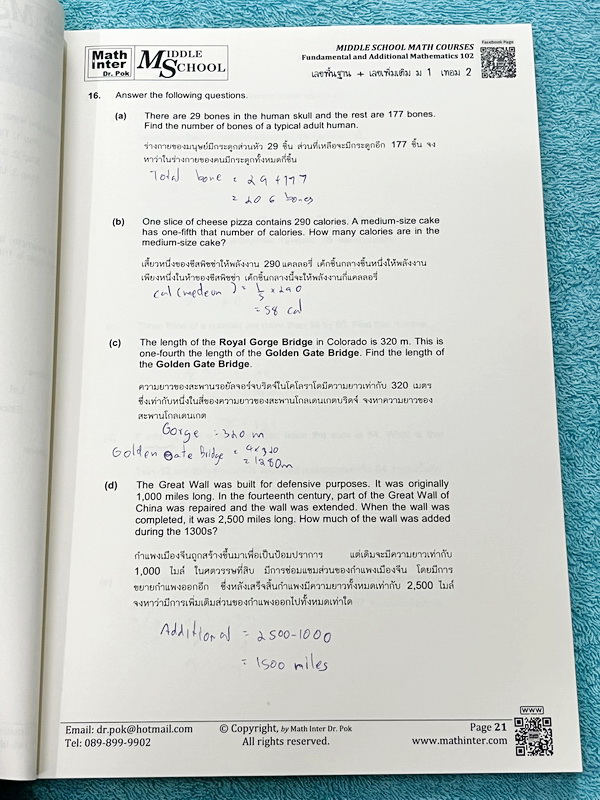 Math
Inter
Dr. Pok
MIDDLE
SCHOOL
MIDDLE SCHOOL MATH COURSES
Fundamental and Additional Mathematics 102
เลขพื้นฐาน + เลขเพิ่มเติม ม 1 เทอม 2
Facebook Page
16. Answer the following questions.
(a) There are 29 bones in the human skull and the rest are 177 bones.
Find the number of bones of a typical adult human.
ร่างกายของมนุษย์มีกระดูกส่วนหัว 29 ชิ้น ส่วนที่เหลือจะมีกระดูกอีก 177 ชิ้น จง
หาว่าในร่างกายของคนมีกระดูกทั้งหมดกี่ชิ้น
Total bone = 29 + 177
= 206 bones
(b) One slice of cheese pizza contains 290 calories. A medium-size cake
has one-fifth that number of calories. How many calories are in the
medium-size cake?
เสี้ยวหนึ่งของชีสพิซซ่าให้พลังงาน 290 แคลลอรี่ เค้กชิ้นกลางชิ้นหนึ่งให้พลังงาน
เพียงหนึ่งในห้าของชีสพิซซ่า เค้กชิ้นกลางนี้จะให้พลังงานกี่แคลลอรี่
Cal (medium) = 1/5 x 290
= 58 cal
(c) The length of the Royal Gorge Bridge in Colorado is 320 m. This is
one-fourth the length of the Golden Gate Bridge. Find the length of
the Golden Gate Bridge.
ความยาวของสะพานรอยัลจอร์จบริดจ์ในโคโลราโดมีความยาวเท่ากับ 320 เมตร
ซึ่งเท่ากับหนึ่งในสี่ของความยาวของสะพานโกลเดนเกตบริดจ์ จงหาความยาวของ
สะพานโกลเดนเกต
Gorge = 320 m
Golden Gate Bridge = 4 x 320
= 1280 m
(d) The Great Wall was built for defensive purposes. It was originally
1,000 miles long. In the fourteenth century, part of the Great Wall of
China was repaired and the wall was extended. When the wall was
completed, it was 2,500 miles long. How much of the wall was added
during the 1300s?
กำแพงเมืองจีนถูกสร้างขึ้นมาเพื่อเป็นป้อมปราการ แต่เดิมจะมีความยาวเท่ากับ
1,000 ไมล์ ในศตวรรษที่สิบ มีการซ่อมแซมส่วนของกำแพงเมืองจีน โดยมีการ
ขยายกำแพงออกอีก ซึ่งหลังเสร็จสิ้นกำแพงมีความยาวทั้งหมดเท่ากับ 2,500 ไมล์
จงหาว่ามีการเพิ่มเติมส่วนของกำแพงออกไปทั้งหมดเท่าใด
Additional = 2500-1000
= 1500 miles
Email: dr.pok@hotmail.com
Tel: 089-899-9902
© Copyright, by Math Inter Dr. Pok
All rights reserved.
Page 21
www.mathinter.com
WWW